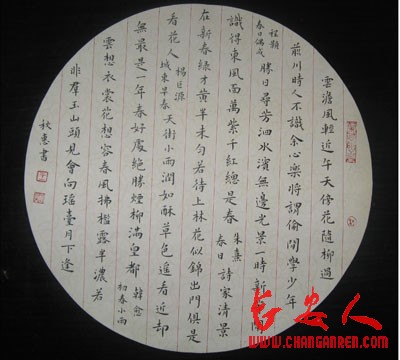 雲澹風輕近午天傍花隨柳過
前川時人不識余心樂將謂偷閒學少年
程顥
春日偶成
勝日尋芳泗水濱無邊光景一時新
識得東風面萬紫千紅總是春
朱熹
春日
詩家清景
在新春綠才黃半未勻若待上林花似錦出門俱是
看花人
楊巨源
城東早春
天街小雨潤如酥草色遙看近却
無最是一年春好處絕勝煙柳滿皇都
韓愈
初春小雨
雲想衣裳花想容春風拂檻露華濃若
非羣玉山頭見會向瑤臺月下逢
秋惠書
长安人
WWW.CHANGANREN.COM